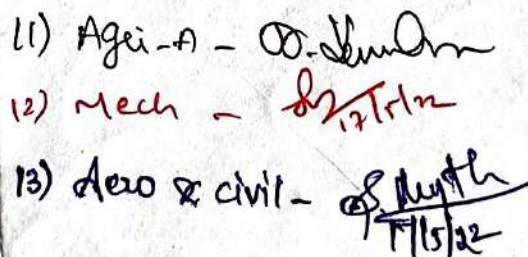 11) Agri-A -
12) Mech - 17/5/22
13) Aero & civil -
17/5/22